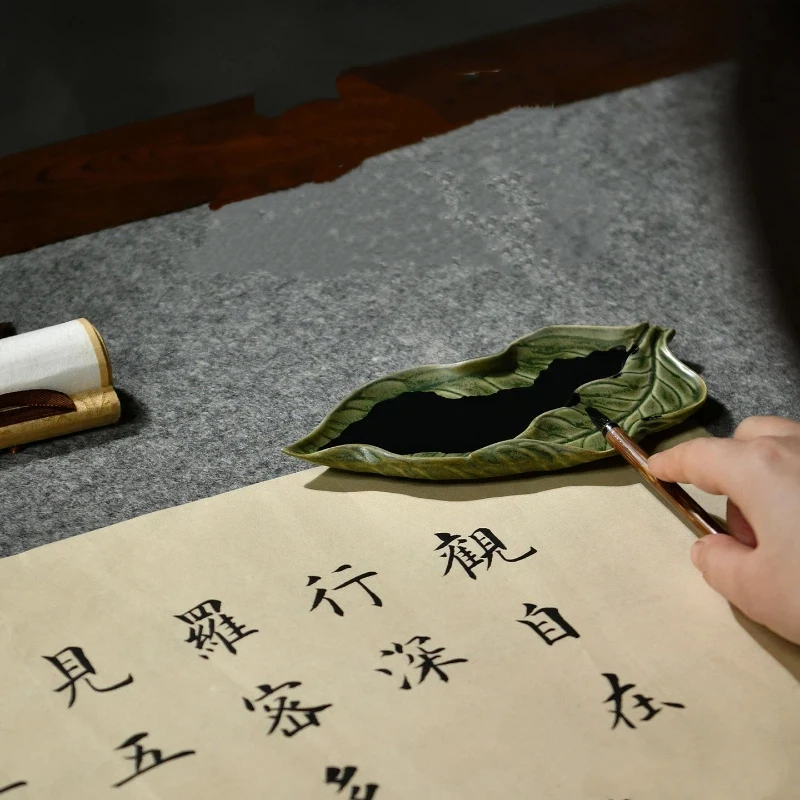 觀自在
行深
羅密多
見五